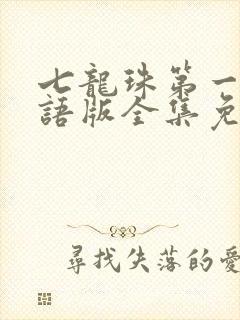 七龍珠第一
語版全集免
尋找失落的愛